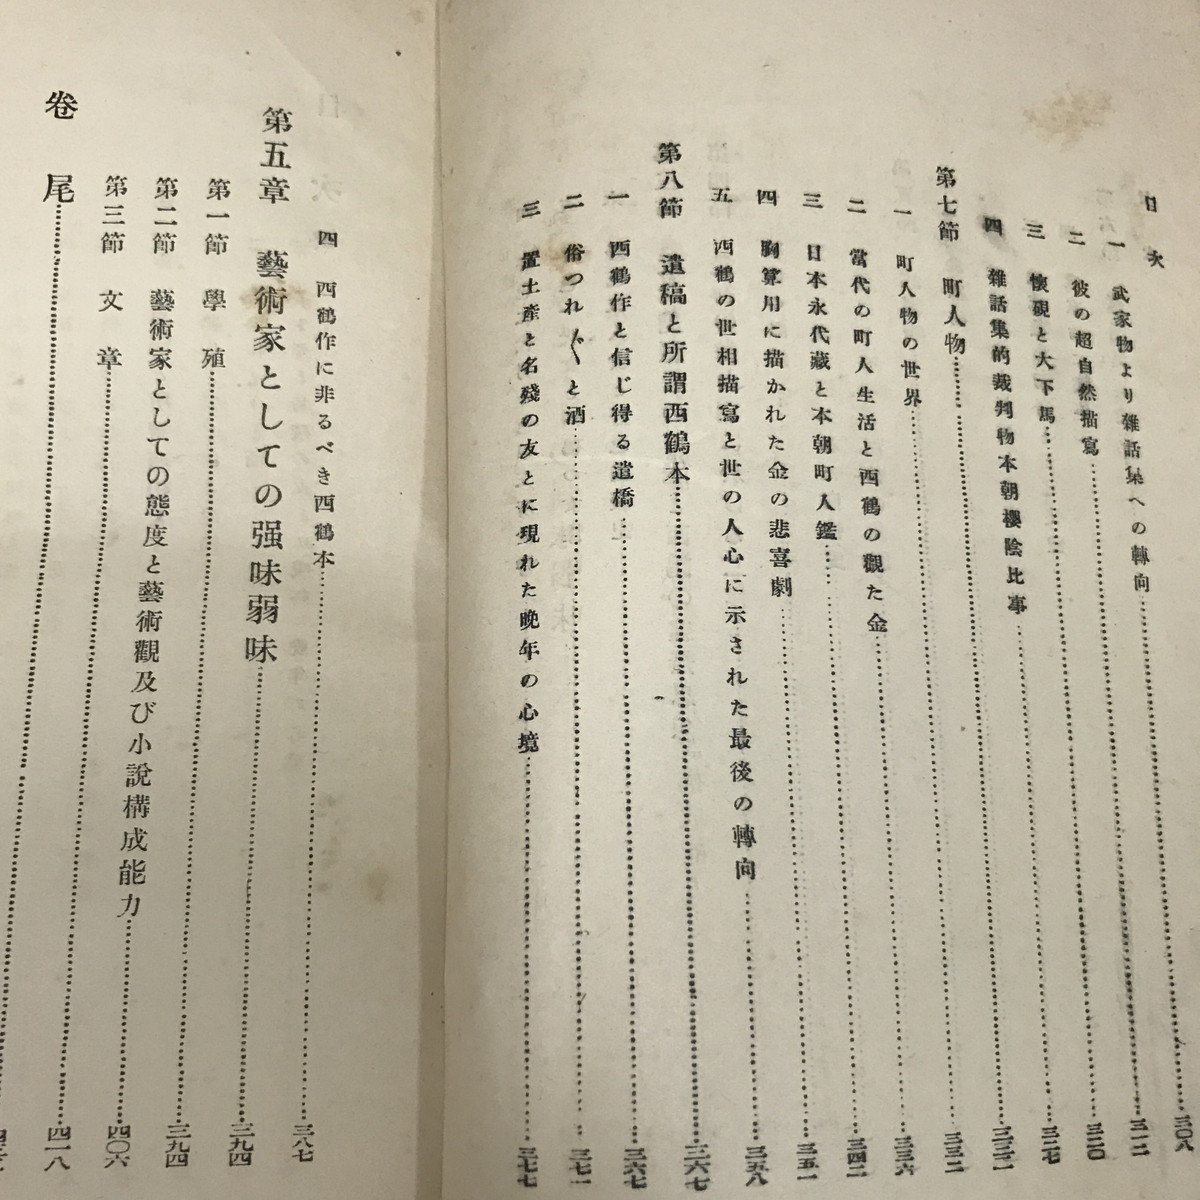 目次
一 武家物より雜話集への轉向……三〇八
二 彼の超自然描寫……三一二
三 懷硯と大下馬……三二〇
四 雜話集的裁判物本朝櫻陰比事……三二七
第七節 町人物……三三二
一 町人物の世界……三三二
二 當代の町人生活と西鶴の觀た金……三三六
三 日本永代藏と本朝町人鑑……三四二
四 胸算用に描かれた金の悲喜劇……三五一
五 西鶴の世相描寫と世の人心に示された最後の轉向……三五八
第八節 遺稿と所謂西鶴本……三六七
一 西鶴作と信じ得る遺橋……三六七
二 俗つれ〴〵と酒……三七一
三 置土産と名殘の友とに現れた晩年の心境……三七七
四 西鶴作に非るべき西鶴本……三八七
第五章 藝術家としての强味弱味……三九四
第一節 學殖……三九四
第二節 藝術家としての態度と藝術觀及び小說構成能力……四〇六
第三節 文章……四一八
卷尾……